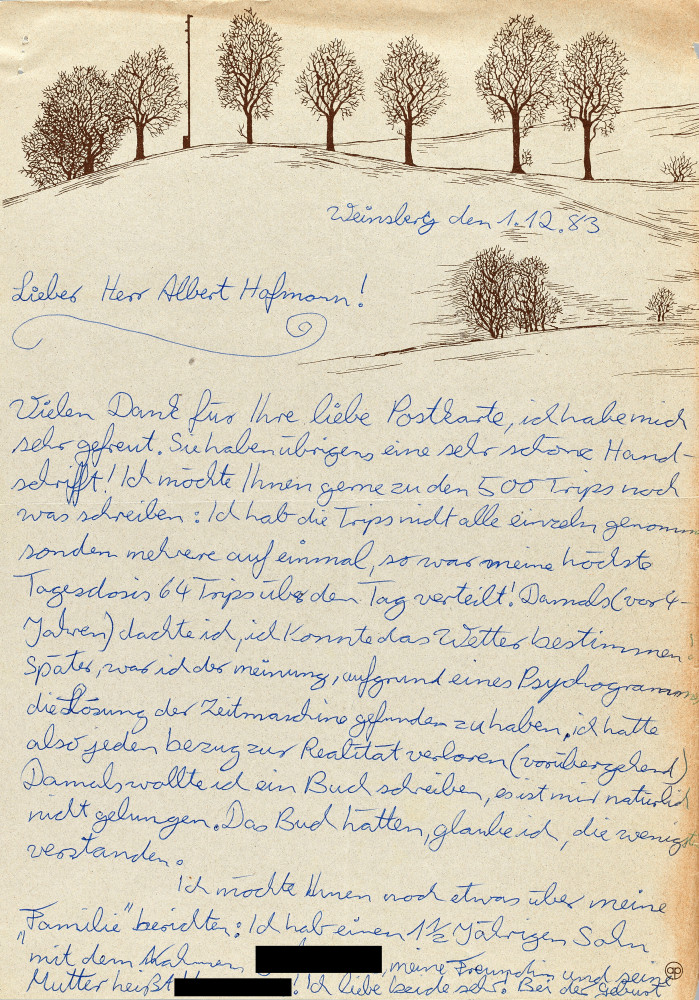 Weinsberg den 1.12.83
Lieber Herr Albert Hofmann!
Vielen Dank für Ihre liebe Postkarte, ich habe mich
sehr gefreut. Sie haben übrigens eine sehr schöne Hand-
schrifft! Ich möchte Ihnen gerne zu den 500 Trips noch
was schreiben: Ich hab die Trips nicht alle einzeln genomm
sondern mehrere auf einmal, so war meine höchste
Tagesdosis 64 Trips über den Tag verteilt! Damals (vor 4-
Jahren) dachte ich, ich konnte das Wetter bestimmen.
Später, war ich der meinung, aufgrund eines Psychogramms,
die Lösung der Zeitmaschine gefunden zu haben, ich hatte
also jeden bezug zur Realität verloren (vorübergehend)
Damals wollte ich ein Buch schreiben, es ist mir natürlich
nicht gelungen. Das Buch hätten, glaube ich, die wenigst
verstanden.
Ich möchte Ihnen noch etwas über meine
"Familie" berichten: Ich hab einen 1 1/2 Jährigen Sohn
mit dem Nahmen , meine Freundin und seine
Mutter heißt ! Ich liebe beide sehr. Bei der Geburt